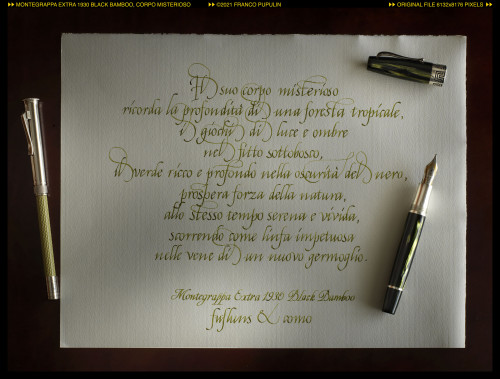 MONTEGRAPPA EXTRA 1930 BLACK BAMBOO, CORPO MISTERIOSO ©2021 FRANCO PUPULIN ORIGINAL FILE 6132x8176 PIXELS
Il suo corpo misterioso
ricorda la profondità di una foresta tropicale,
i giochi di luce e ombre
nel fitto sottobosco,
il verde ricco e profondo nella oscurità del nero,
prospera forza della natura,
allo stesso tempo serena e vivida,
scorrendo come linfa impetuosa
nelle vene di un nuovo germoglio.
Montegrappa Extra 1930 Black Bamboo